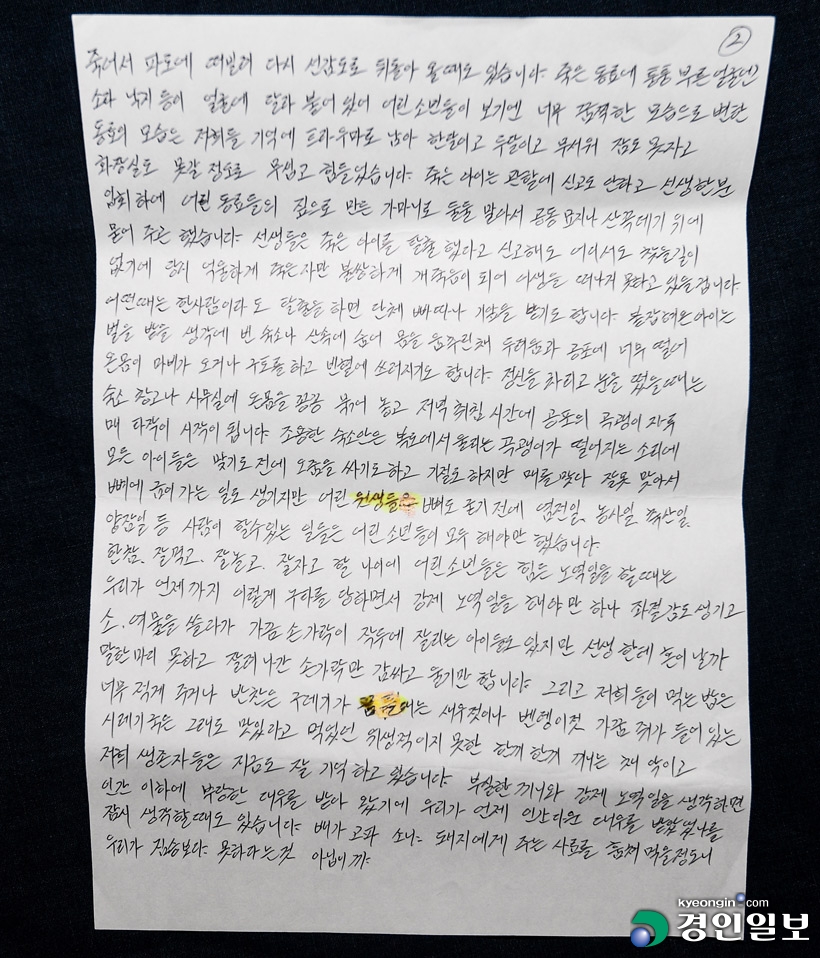 ②
죽어서 파도에 떠밀려 다시 선감도로 뒤돌아 올때도 있습니다. 죽은 동료에 퉁퉁 부른 얼굴엔
소라 낙지 등이 얼굴에 달라 붙어 있어 어린 소년들이 보기엔 너무 끔찍한 모습으로 변한
동료의 모습은 저희들 기억에 트라우마로 남아 한달이고 두달이고 무서워 잠도 못자고
화장실도 못갈 정도로 무섭고 힘들었습니다. 죽은 아이는 관할에 신고도 안하고 선생 한분
입회하에 어린 동료들의 짚으로 만든 가마니로 둘둘 말아서 공동묘지나 산꼭데기 위에
묻어 주곤 했습니다. 선생들은 죽은 아이를 탈출 했다고 신고해도 어디서도 찾을길이
없기에 왠지 억울하게 죽은자만 불쌍하게 개죽음이 되어 이생을 떠나지 못하고 있을겁니다
어떤때는 한사람이라도 탈출을 하면 단체 빠따나 기압을 받기도 합니다. 붙잡혀온 아이는
벌을 받을 생각에 빈 숙소나 산속에 숨어 몸을 움푸린채 두려움과 공포에 너무 떨어
온몸이 마비가 오거나 구토를 하고 빈혈에 쓰러지기도 합니다. 정신을 차리고 눈을 떴을때는
숙소 창고나 사무실에 온몸을 꽁꽁 묶어 놓고 저녁 취침 시간에 공포의 곡괭이 자루
매 타작이 시작이 됩니다. 조용한 숙소안은 복도에서 울리는 곡괭이가 떨어지는 소리에
모든 아이들은 맞기도 전에 오줌을 싸기도 하고 기절도 하지만 매를 맞다 잘못 맞아서
뼈에 금이 가는 일도 생기지만 어린 원생들은 뼈도 굳기 전에 염전일, 농사일, 축산일,
양잠일 등 사람이 할수 있는 일들은 어린 소년들이 모두 해야만 했습니다.
한참, 잘먹고, 잘놀고, 잘자고 할 나이에 어린 소년들은 힘든 노역일을 할때는
우리가 언제까지 이렇게 구타를 당하면서 강제 노역일을 해야만 하나 좌절감도 생기고
소, 여물을 쓸다가 가끔 손가락이 작두에 잘리는 아이들도 있지만 선생한테 혼이 날까
말한마리 못하고 잘려나간 손가락만 감싸고 울기만 합니다. 그리고 저희들이 먹는 밥은
너무 적게 주거나 반찬은 구데기가 들끓는 새우젓이나 벤뎅이젓 가끔 쥐가 들어 있는
시레기국은 그래도 맛있다고 먹었던 위생적이지 못한 한끼 한끼 때는 것 악이고
저희 생존자들은 지금도 잘 기억하고 있습니다. 부실한 끼니와 강제 노역일을 생각하면
인간 이하에 부당한 대우를 받다 왔기에 우리가 언제 인간다운 대우를 받았었나를
잠시 생각할때도 있습니다. 배가 고파 소나 돼지에게 주는 사료를 훔쳐 먹을정도니
우리가 짐승보다 못하다는것 아닙니까.
kyeongin.com
경인일보